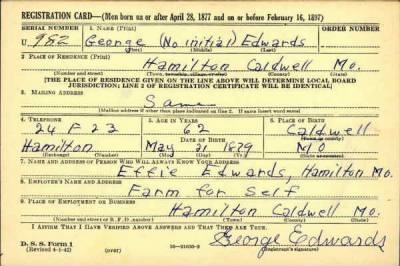 REGISTRATION CARD—(Men born on or after April 28, 1877 and on or before February 16, 1897)
SERIAL NUMBER 1. NAME (Print) ORDER NUMBER
U 982 George (No initial) Edwards
(First) (Middle) (Last)
2. PLACE OF RESIDENCE (Print)
Hamilton Caldwell Mo.
(Number and street) (Town, township, village, or city) (County) (State)
[THE PLACE OF RESIDENCE GIVEN ON THE LINE ABOVE WILL DETERMINE LOCAL BOARD
JURISDICTION; LINE 2 OF REGISTRATION CERTIFICATE WILL BE IDENTICAL]
3. MAILING ADDRESS
Same
[Mailing address if other than place indicated on line 2. If same insert word same]
4. TELEPHONE 5. AGE IN YEARS 6. PLACE OF BIRTH
24 F 23 62 Caldwell
DATE OF BIRTH (Town or county)
Hamilton May 31 1879 MO
(Exchange) (Number) (Mo.) (Day) (Yr.) (State or country)
7. NAME AND ADDRESS OF PERSON WHO WILL ALWAYS KNOW YOUR ADDRESS
Effie Edwards, Hamilton Mo.
8. EMPLOYER'S NAME AND ADDRESS
Farm for Self
9. PLACE OF EMPLOYMENT OR BUSINESS
Hamilton Caldwell Mo.
(Number and street or R. F. D. number) (Town) (County) (State)
I AFFIRM THAT I HAVE VERIFIED ABOVE ANSWERS AND THAT THEY ARE TRUE.
D. S. S. Form 1
(Revised 4-1-42) (over) 16—21630-2 George Edwards
(Registrant's signature)